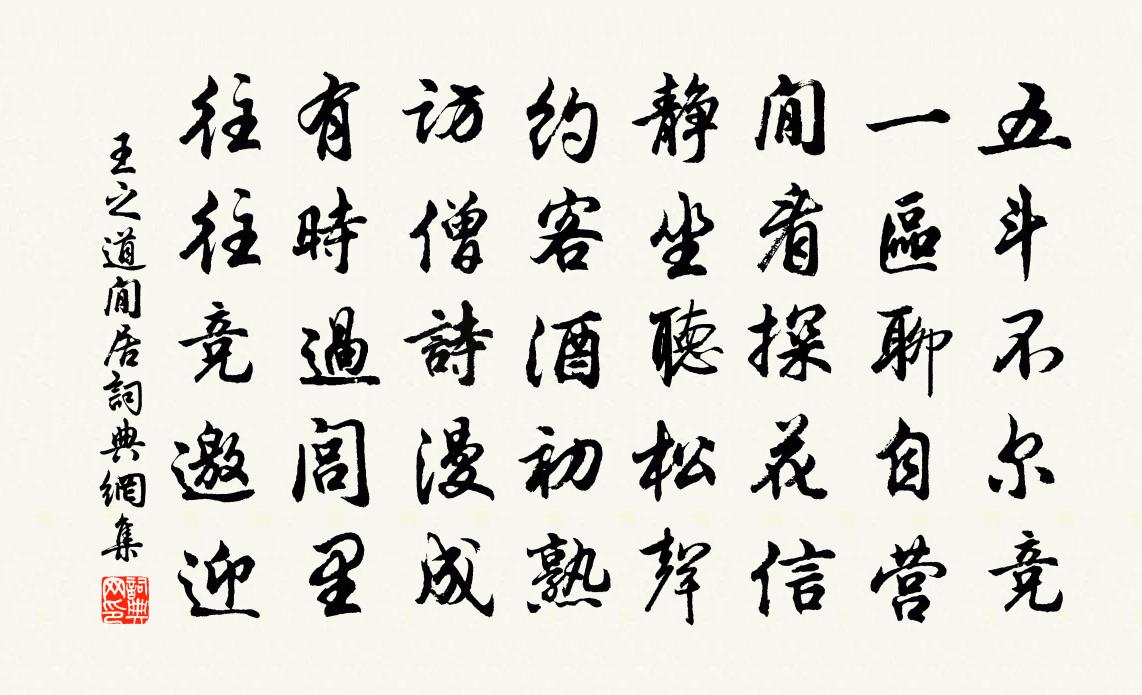 五斗不尔竞
一區聊自营
閒看探花信
静坐聽松聲
約客酒初熟
訪僧詩漫成
有時過閭里
往往竞邀迎
王之道閒居詞典網集
詞典网印